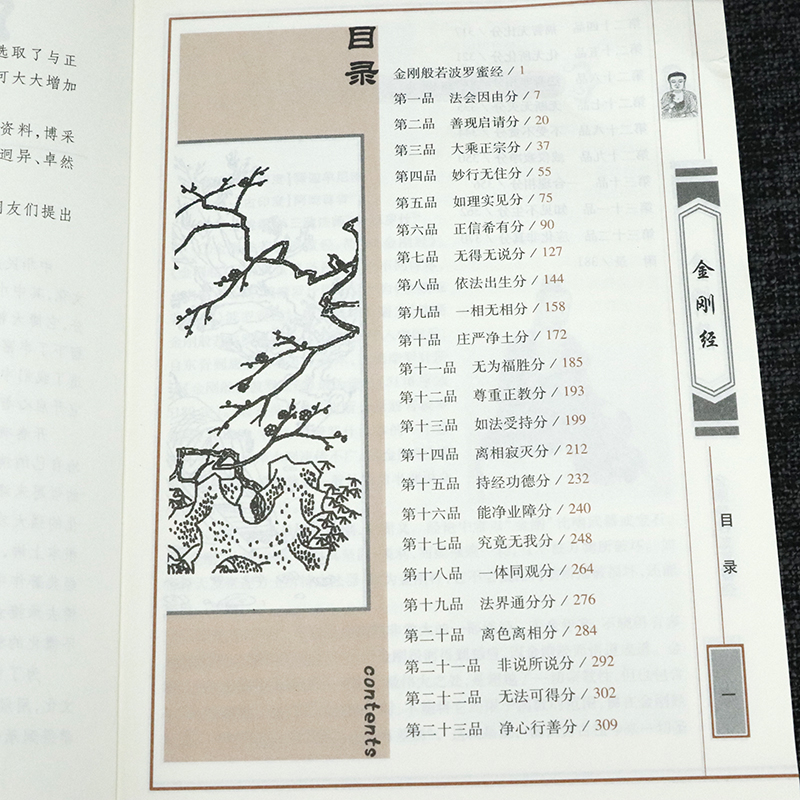 选取了与正
可大大增加
资料，博采
迥异、卓然
朋友们提出
目录
金刚般若波罗蜜经 / 1
第一品 法会因由分 / 7
第二品 善现启请分 / 20
第三品 大乘正宗分 / 37
第四品 妙行无住分 / 55
第五品 如理实见分 / 75
第六品 正信希有分 / 90
第七品 无得无说分 / 127
第八品 依法出生分 / 144
第九品 一相无相分 / 158
第十品 庄严净土分 / 172
第十一品 无为福胜分 / 185
第十二品 尊重正教分 / 193
第十三品 如法受持分 / 199
第十四品 离相寂灭分 / 212
第十五品 持经功德分 / 232
第十六品 能净业障分 / 240
第十七品 究竟无我分 / 248
第十八品 一体同观分 / 264
第十九品 法界通分分 / 276
第二十品 离色离相分 / 284
第二十一品 非说所说分 / 292
第二十二品 无法可得分 / 302
第二十三品 净心行善分 / 309
contents
金刚经
目录
一